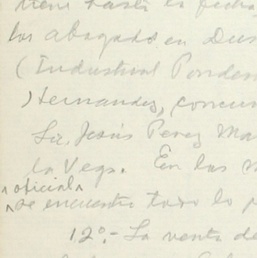 tiene hasta la fecha
los abogados en Dus
(Industrial Ponden
Hernandez, concur
Sr. Jesús Perez Ma
la Vega. En las
oficial
se encuentra todo lo p
12º.- La venta de